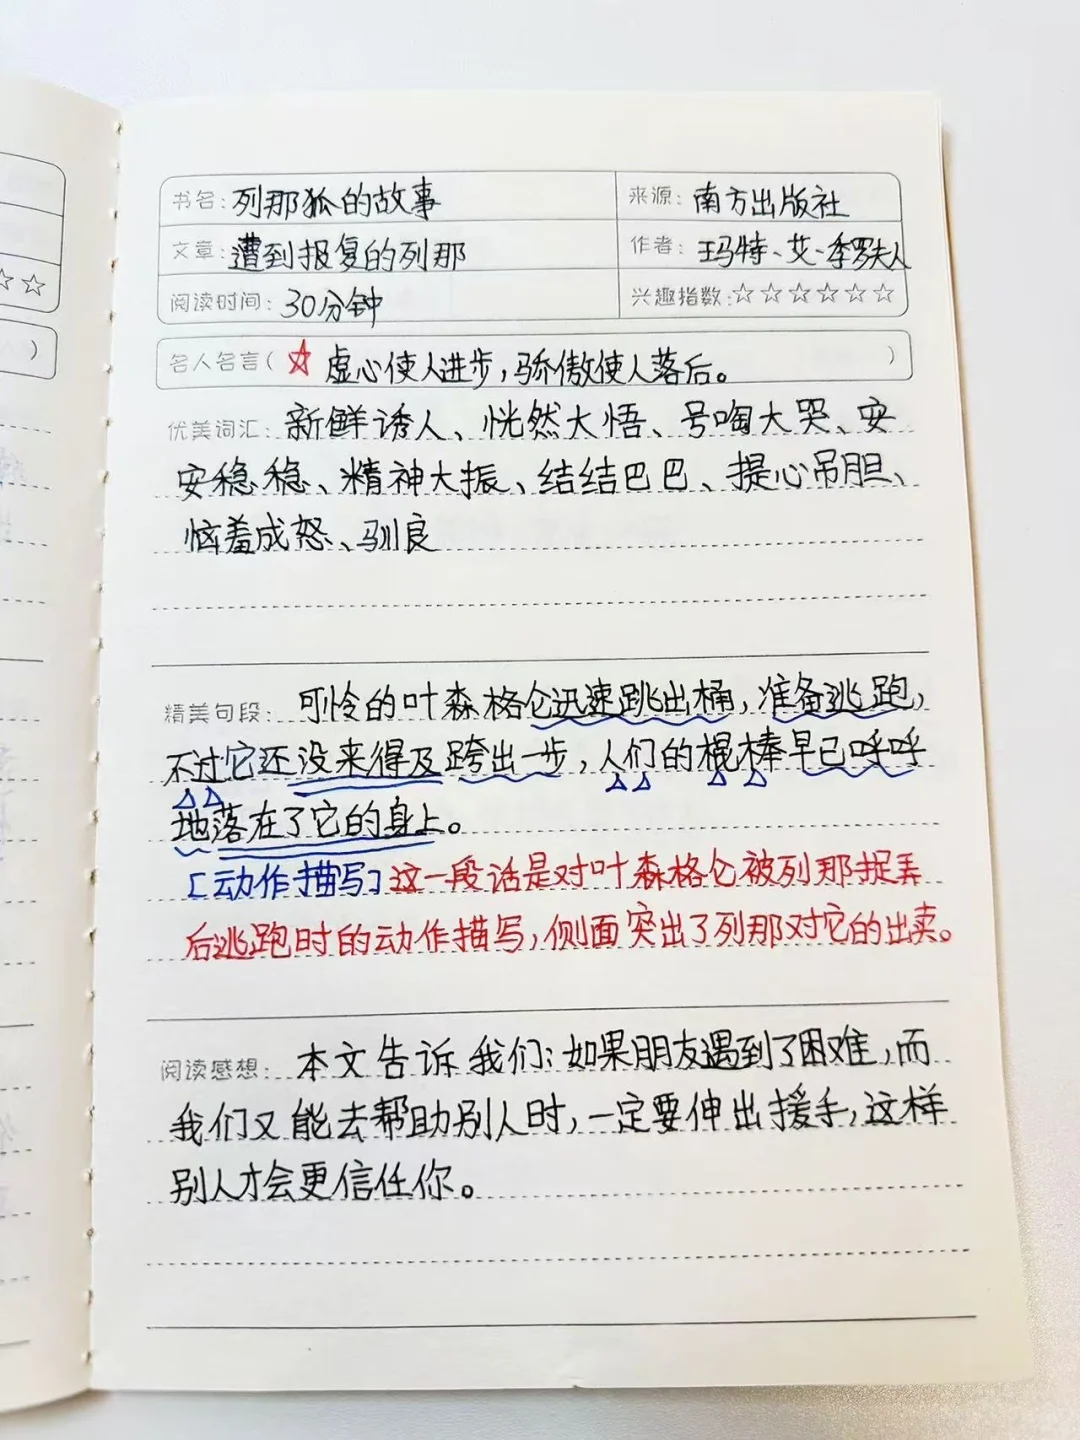 书名: 列那狐的故事
来源: 南方出版社
文章: 遭到报复的列那
作者: 玛特、艾、季罗夫人
阅读时间: 30分钟
兴趣指数:☆☆☆☆☆☆
名人名言(☆ 虚心使人进步,骄傲使人落后。)
优美词汇: 新鲜诱人、恍然大悟、号啕大哭、安
安稳稳、精神大振、结结巴巴、提心吊胆、
恼羞成怒、驯良
精美句段: 可怜的叶森格仑迅速跳出桶,准备逃跑,
不过它还没来得及跨出一步,人们的棍棒早已呼呼
地落在了它的身上。
[动作描写]这一段话是对叶森格仑被列那捉弄
后逃跑时的动作描写,侧面突出了列那对它的出卖。
阅读感想: 本文告诉我们:如果朋友遇到了困难,而
我们又能去帮助别人时,一定要伸出援手,这样
别人才会更信任你。